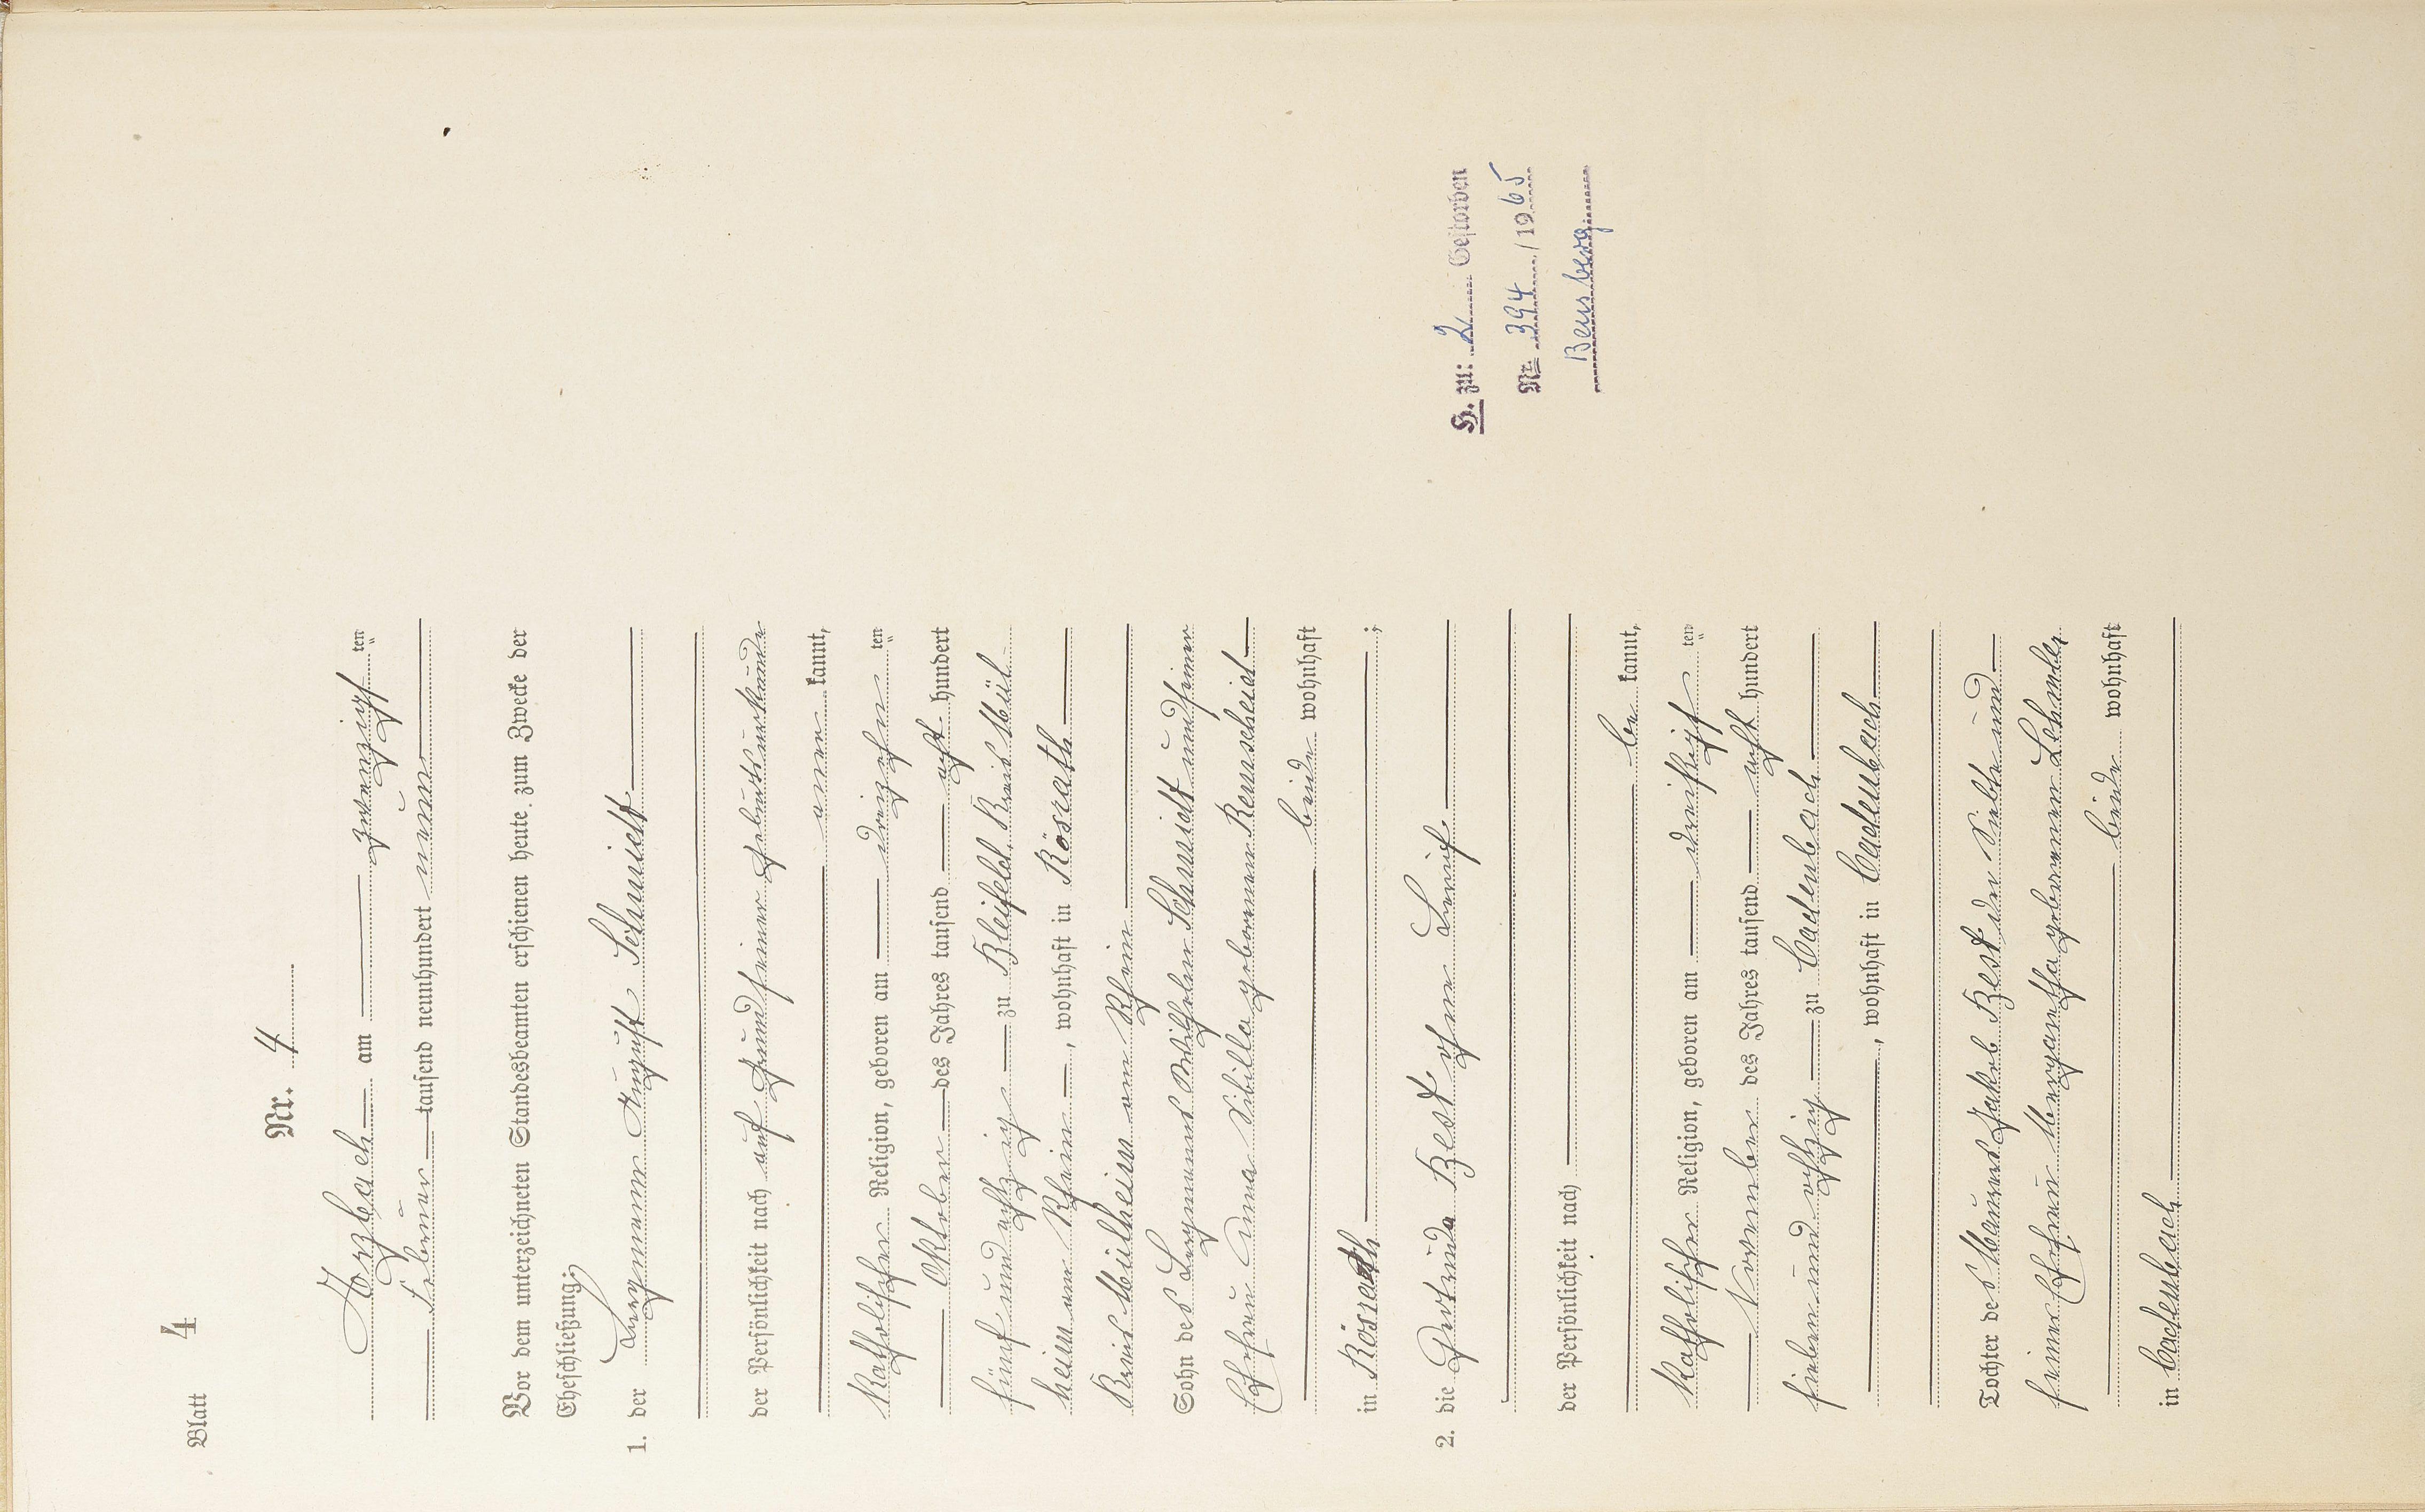 Blatt 4
Nr. 4
Arzbach am zwanzigsten
Februar tausend neunhundert neun
Vor dem unterzeichneten Standesbeamten erschienen heute zum Zwecke der
Eheschließung:
1. der Bergmann August Schmidt
der Persönlichkeit nach auf Grund seiner Geburtsurkunde
aner kannt,
katholischer Religion, geboren am dreizehnten
Oktober des Jahres tausend acht hundert
fünf und achtzig zu Bleifeld, Kreis Mül-
heim am Rhein, wohnhaft in Rösrath
Kreis Mülheim am Rhein
Sohn des Bergmanns Wilhelm Schmidt und seiner
Ehefrau Anna Sibilla geborenen Remscheid
beide wohnhaft
in Rösrath;
2. die Gertrud Best ohne Beruf
der Persönlichkeit nach
be kannt,
katholischer Religion, geboren am dreißigsten
November des Jahres tausend acht hundert
sieben und achtzig zu Cadenbach
, wohnhaft in Cadenbach
Tochter des Maurers Jakob Best und
seiner Ehefrau Margaretha geborenen
beide wohnhaft
in Cadenbach
H. zu: 2 Gestorben
Nr. 394/1965
Bensberg